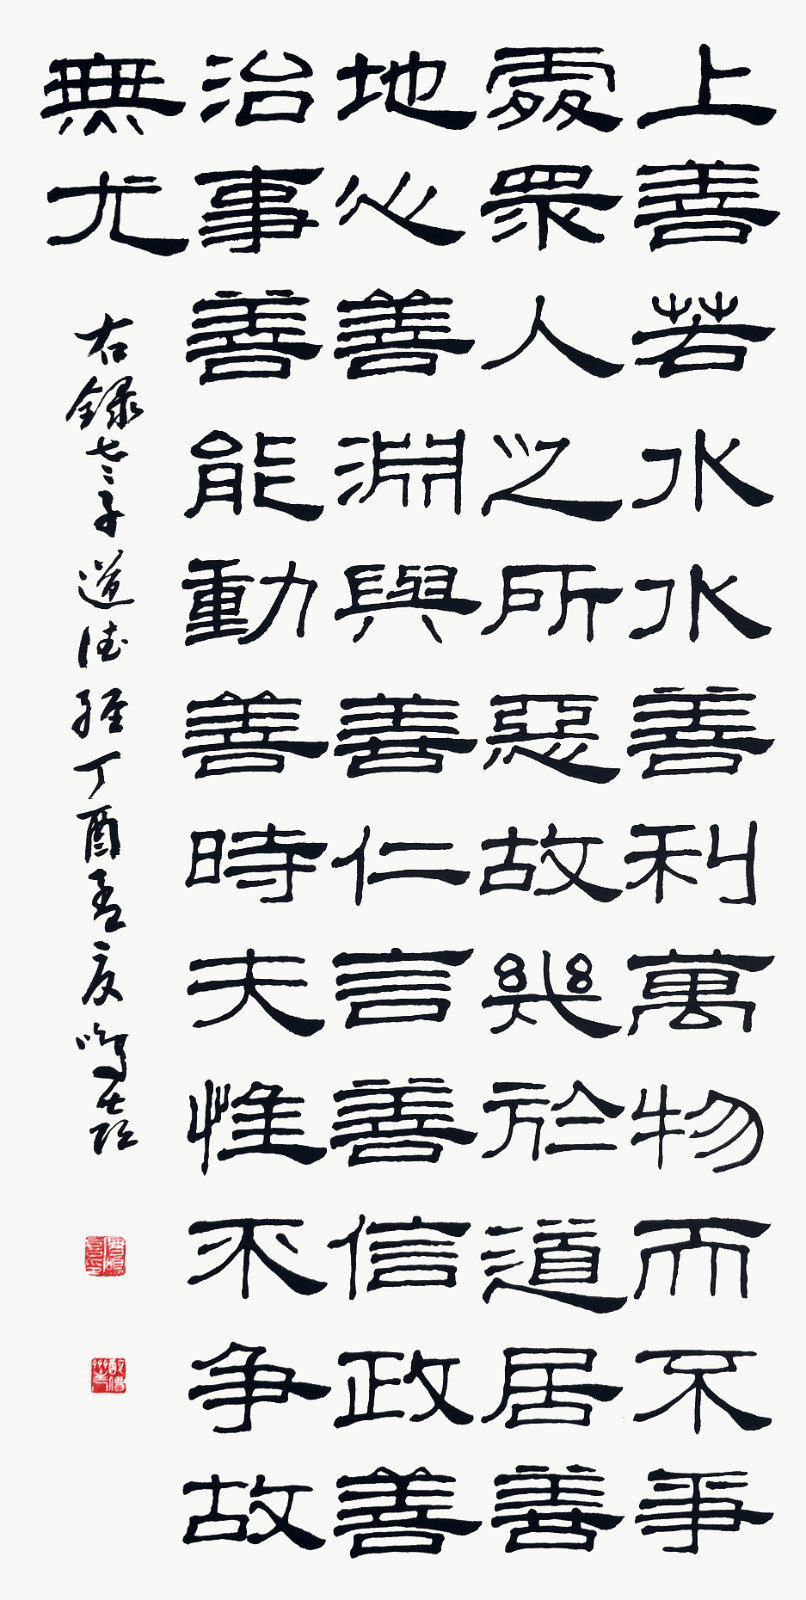 上善若水水善利萬物而不爭
處眾人之所惡故幾於道居善
地心善淵與善仁言善信政善
治事善能動善時夫惟不争故
無尤
右錄老子道德經丁酉孟夏鳴喜